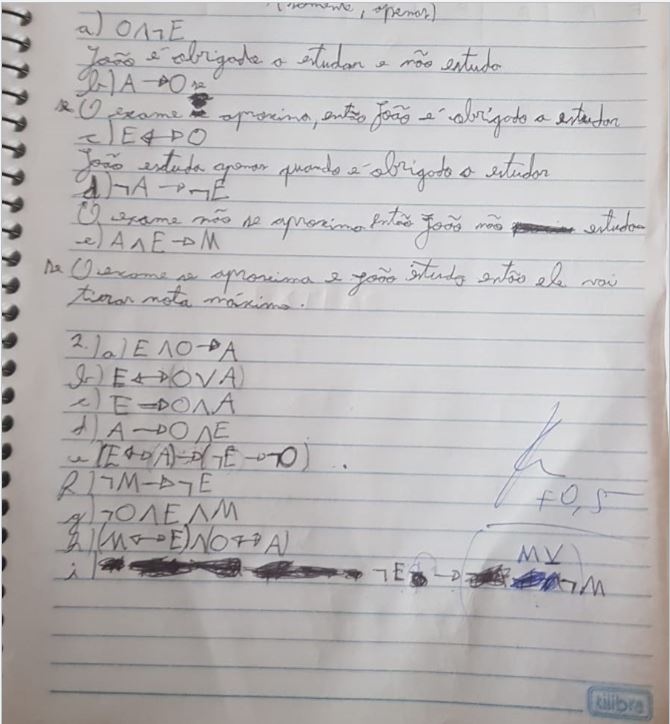 (somente, apenas)
a) O∧¬E
João é obrigado a estudar e não estuda
b) A→O se
se O exame se aproxima, então João é obrigado a estudar
c) E↔O
João estuda apenas quando é obrigado a estudar
d) ¬A→¬E
O exame não se aproxima então João não estuda
e) A∧E→M
se O exame se aproxima e João estuda então ele vai
tirar nota máxima.
2.) a) E∧O→A
b) E↔(O∨A)
c) E→O∧A
d) A→O∧E
e (E↔A)→(¬E→¬O).
f) ¬M→¬E
+0,5
g) ¬O∧E∧M
h) (M↔E)∧(O↔A)
M∨
i) ¬E → ¬M
tilibra